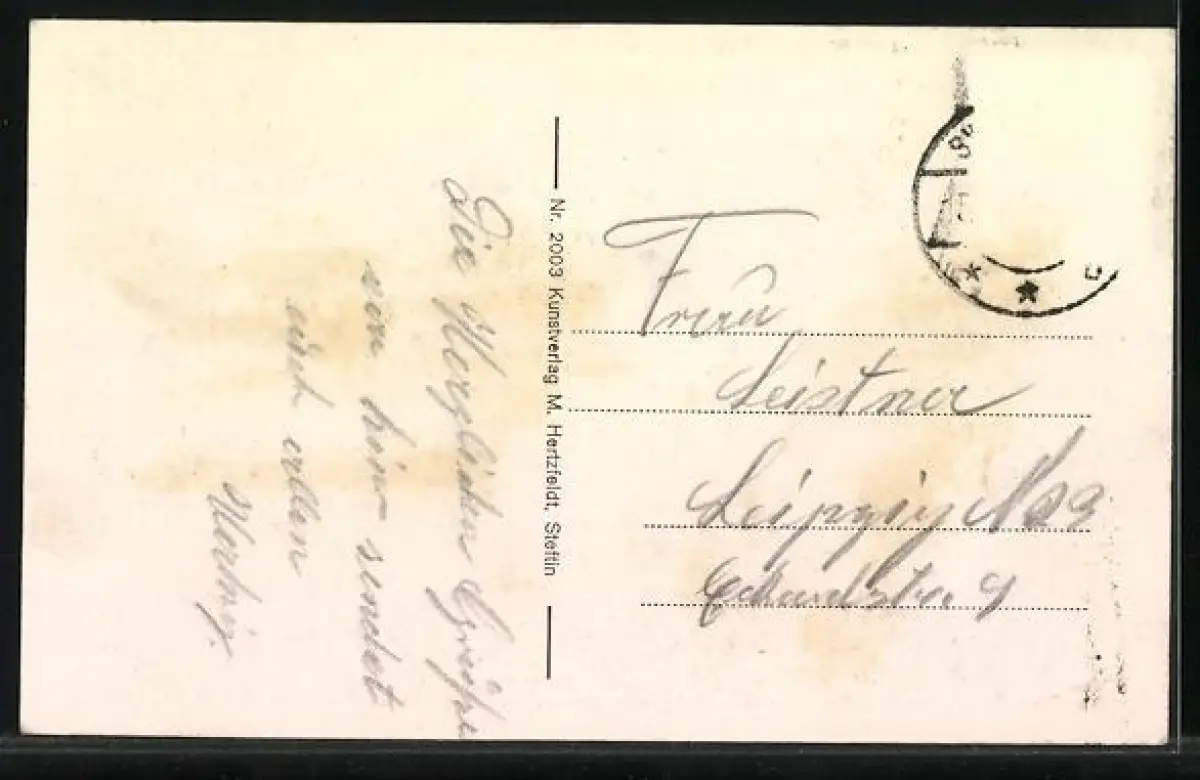 Die Herzlichen Grüße
von hier sendet
euch allen
Martin.
Nr. 2003 Kunstverlag M. Hertzfeldt, Stettin
Frau
Leistner
Leipzig N